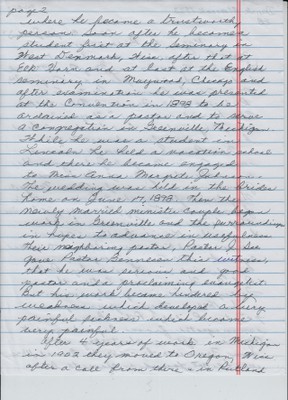 page 2
where he became a trustworthy
person. Soon after he became a
student first at the Seminary in
West Denmark, Wisc. after that at
Elk Horn and at last at the English
seminary in Maywood, Chicago and
after examination he was presented
at the Convention in 1898 to be
ordained as a pastor and to serve
a Congregation in Greenville, Michigan.
While he was a student in
he had a vacation school
and there he became engaged
to Miss Anna Margrete Johnson.
The wedding was held in the Brides
home on June 17, 1898. Then the
Newly Married ministers Couple began
work in Greenville and the surroundings
in hopes to advance in
Neighboring pastor, Pastor J.
gave Pastor this witness,
that he was serious and good
pastor and a proclaiming evangelist
But his work became hindered by
weakness which developed a very
painful sickness which became
very painful.
After 4 years of work in Michigan
in 1902 they moved to Oregon, Wisc
after a call from there - in Rutland